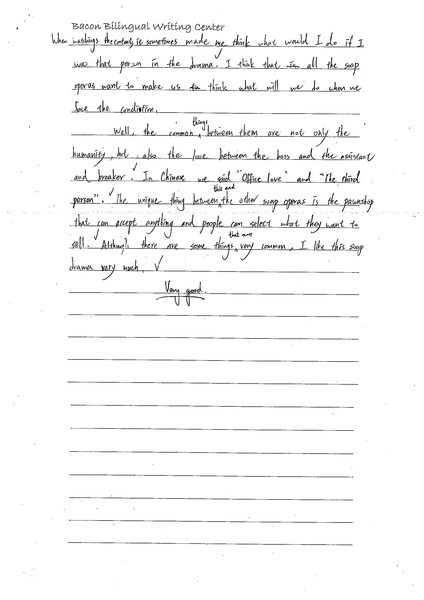 Bacon Bilingual Writing Center
When watchings the contents, it sometimes made me think what would I do if I
was that person in the drama. I think that in all the soap
operas want to make us to think what will we do when we
face the condition.
things
Well, the common between them are not only the
humanity, but also the love between the boss and the assistant
and breaker. In Chinese we said "Office love" and "The third
this and
person". The unique thing between the other soap operas is the pawnshop
that can accept anything and people can select what they want to
that are
sell. Although there are some things very common, I like this soap
dramas very much.
Very good.